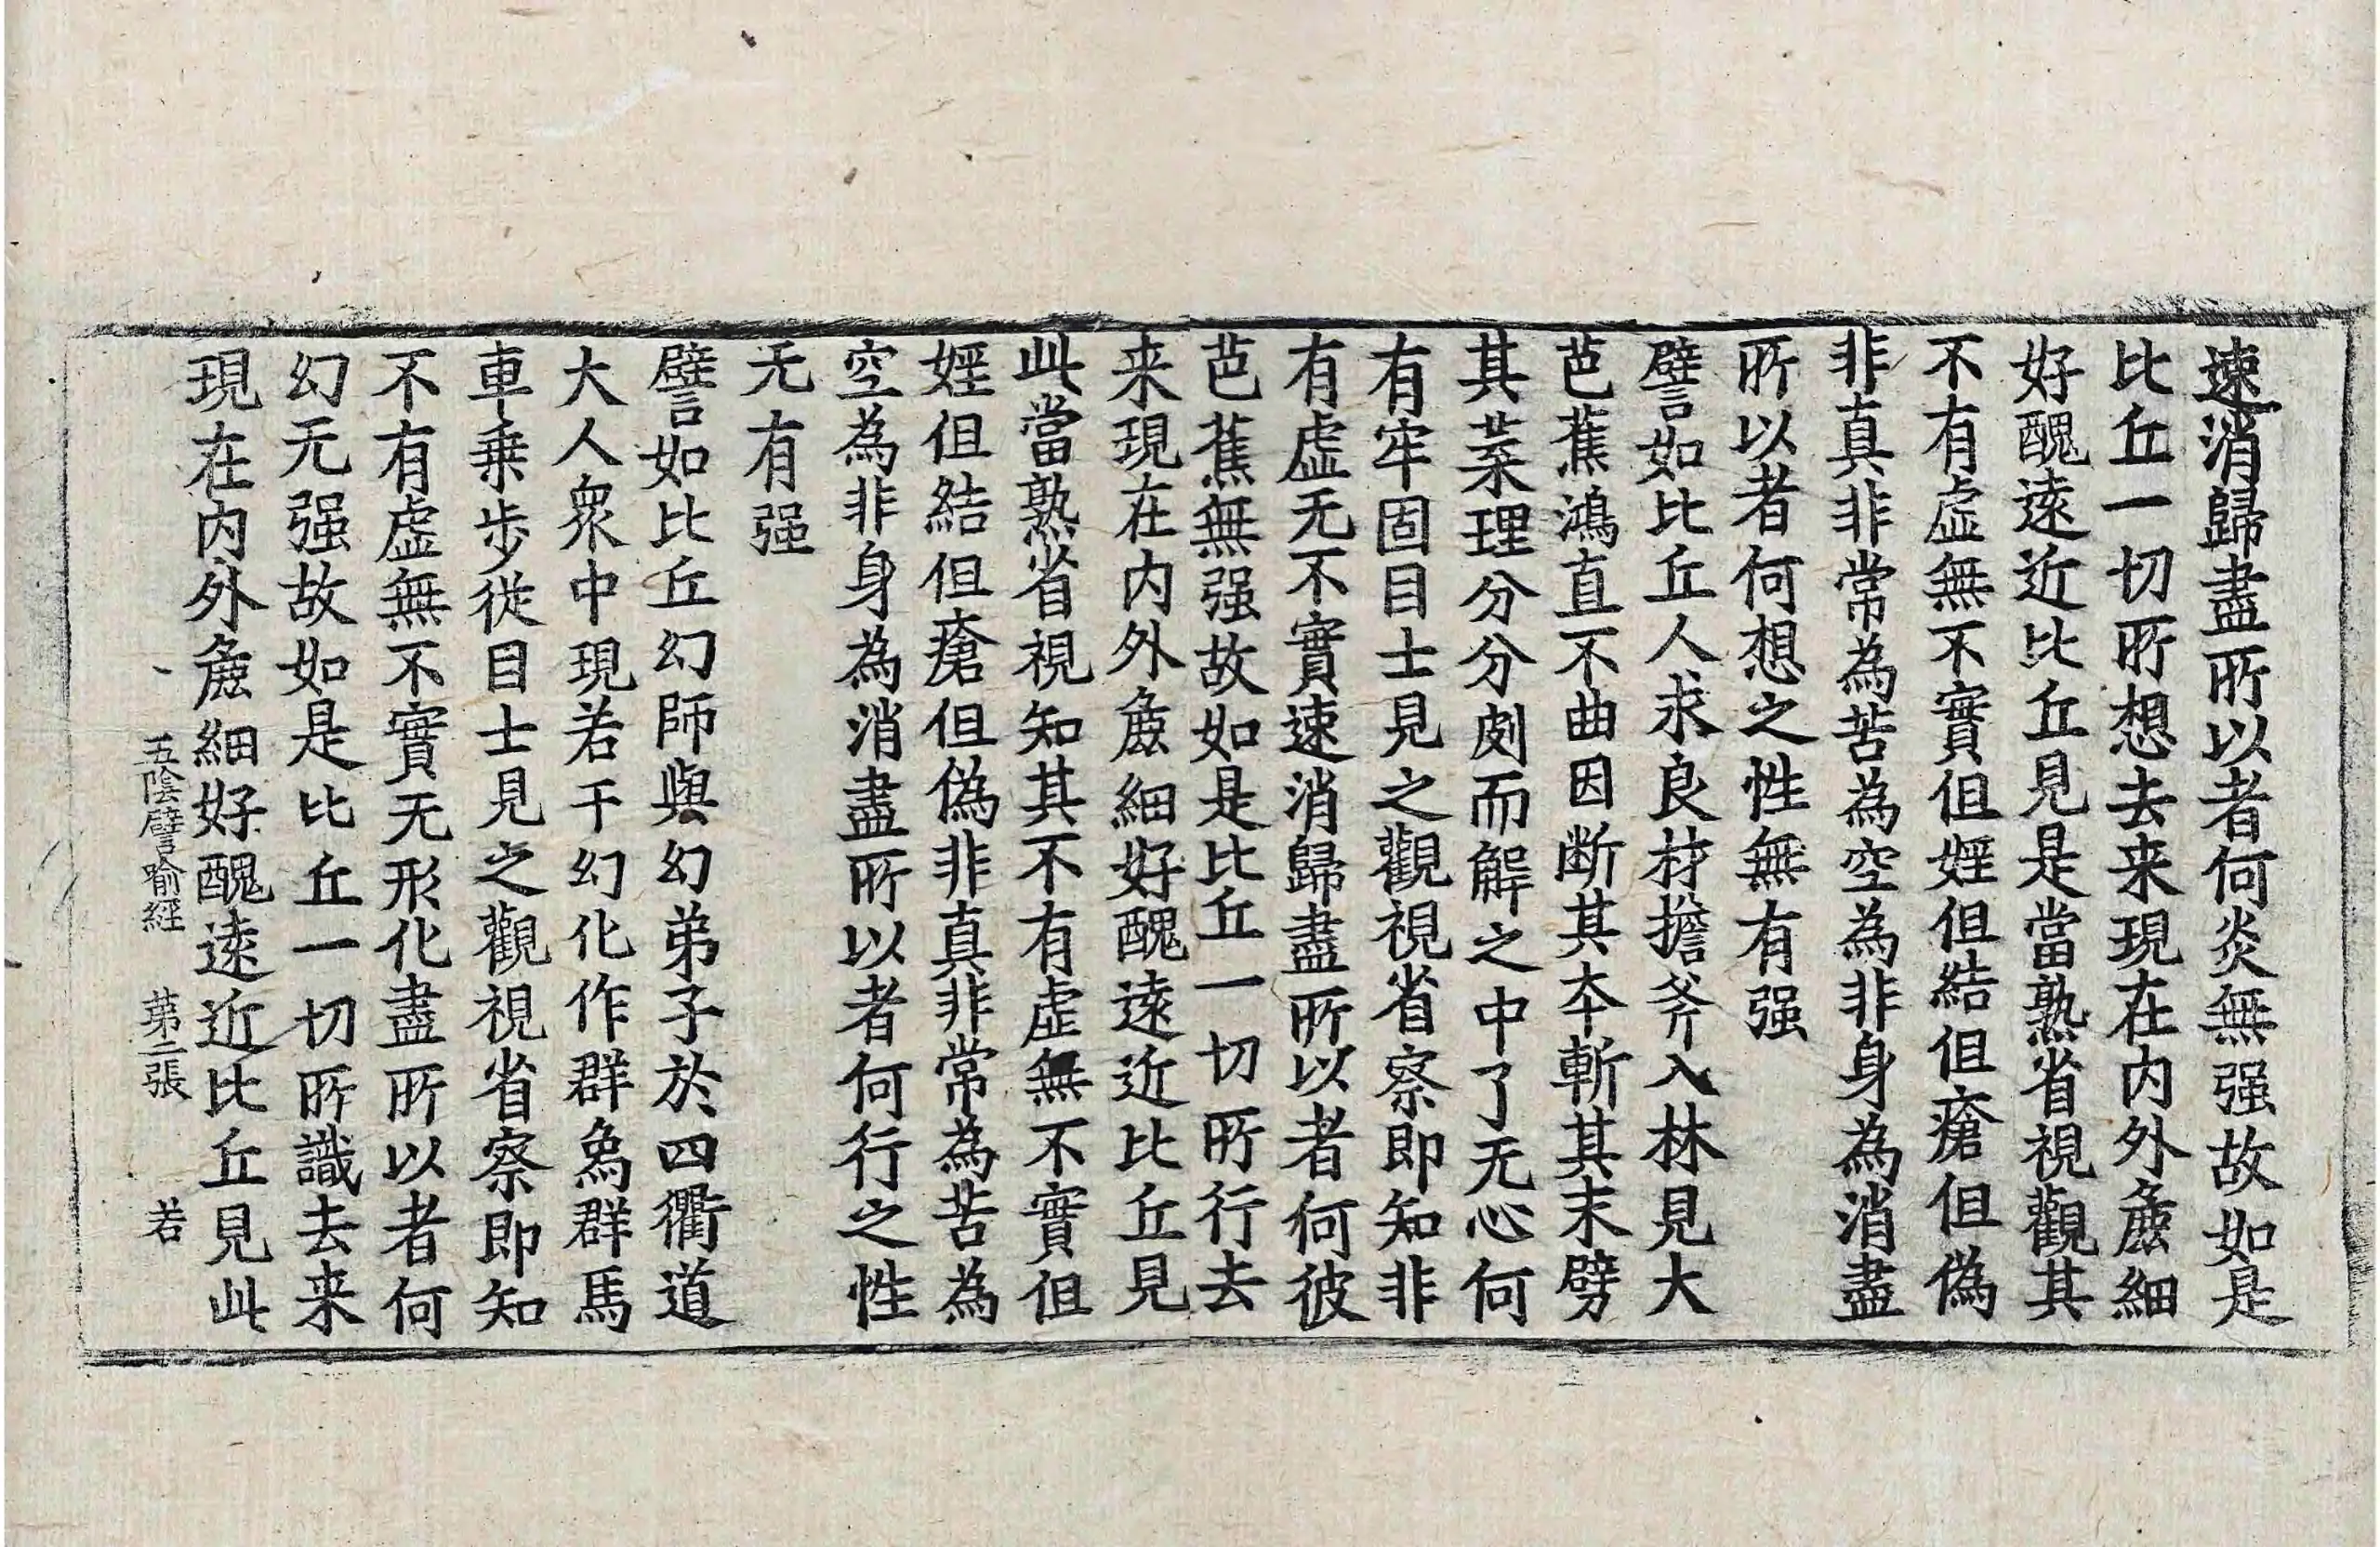 速消歸盡所以者何炎無强故如是
比丘一切所想去来現在内外麁細
好醜遠近比丘見是當熟省視觀其
不有虛無不實但婬但結但瘡但偽
非真非常為苦為空為非身為消盡
所以者何想之性無有强
譬如比丘人求良材擔斧入林見大
芭蕉鴻直不曲因断其夲斬其末劈
其葉理分分剫而解之中了无心何
有牢固目士見之觀視省察即知非
有虛无不實速消歸盡所以者何彼
芭蕉無强故如是比丘一切所行去
来現在内外麁細好醜遠近比丘見
此當熟省視知其不有虛無不實但
婬但結但瘡但偽非真非常為苦為
空為非身為消盡所以者何行之性
无有强
譬如比丘幻師與幻弟子於四衢道
大人衆中現若干幻化作群象群馬
車乗步從目士見之觀視省察即知
不有虛無不實无形化盡所以者何
幻无强故如是比丘一切所識去来
現在内外麁細好醜遠近比丘見此
五陰譬喻經 第二張 若